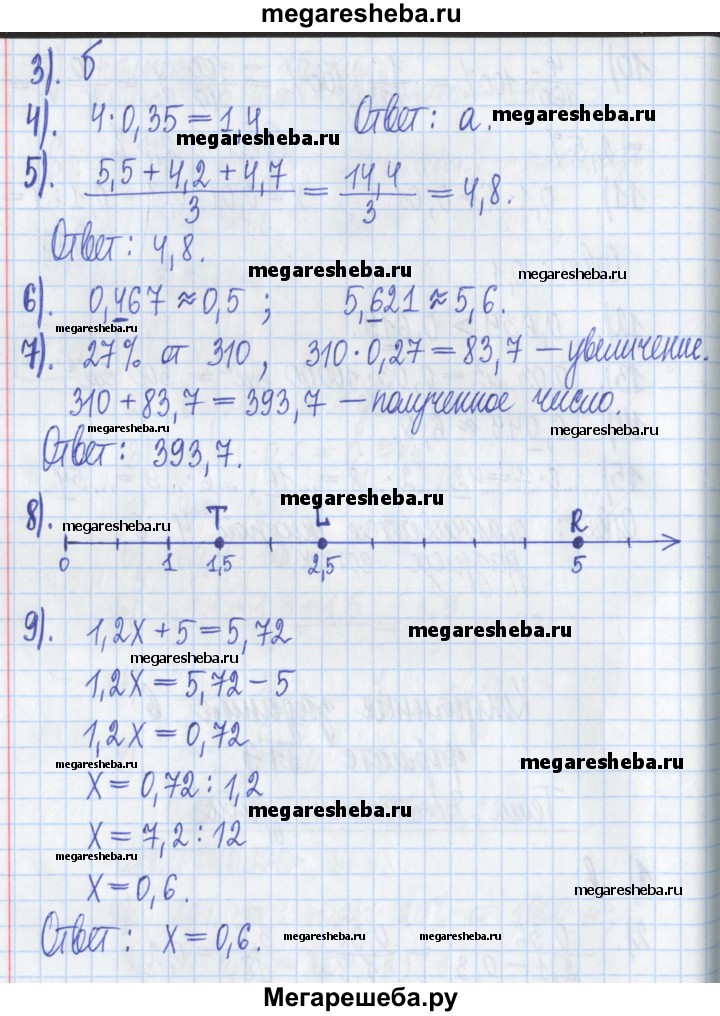 megaresheba.ru
3). б
4). 4·0,35=1,4 Ответ: а. megaresheba.ru
megaresheba.ru
5). (5,5+4,2+4,7)/3 = 14,4/3 = 4,8.
Ответ: 4,8.
megaresheba.ru megaresheba.ru
6). 0,467≈0,5; 5,621≈5,6.
megaresheba.ru
7). 27% от 310, 310·0,27=83,7 – увеличение.
310+83,7=393,7 – полученное число.
megaresheba.ru megaresheba.ru
Ответ: 393,7.
megaresheba.ru
8). megaresheba.ru T L R
0 1 1,5 2,5 5
9). 1,2x+5=5,72 megaresheba.ru
megaresheba.ru
1,2x=5,72-5
1,2x=0,72
megaresheba.ru megaresheba.ru
x=0,72:1,2
megaresheba.ru
x=7,2:12
megaresheba.ru
x=0,6. megaresheba.ru
Ответ: x=0,6. megaresheba.ru megaresheba.ru
Мегарешеба.ру